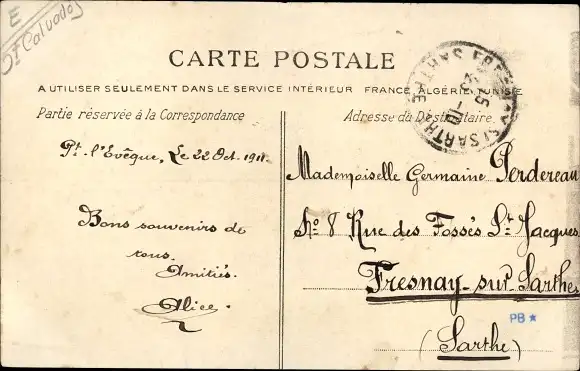 E
St Calvados
CARTE POSTALE
A UTILISER SEULEMENT DANS LE SERVICE INTÉRIEUR FRANCE, ALGÉRIE, TUNISIE
Partie réservée à la Correspondance
Adresse du Destinataire
FRESNAY S/ SARTHE
SARTHE
Pt. l'Evêque, Le 22 Oct. 1911.
Bons souvenirs de
tous.
Amitiés.
Alice.
Mademoiselle Germaine Perdereau
No 8 Rue des Fossés St Jacques
Fresnay-sur-Sarthe
(Sarthe)
PB *